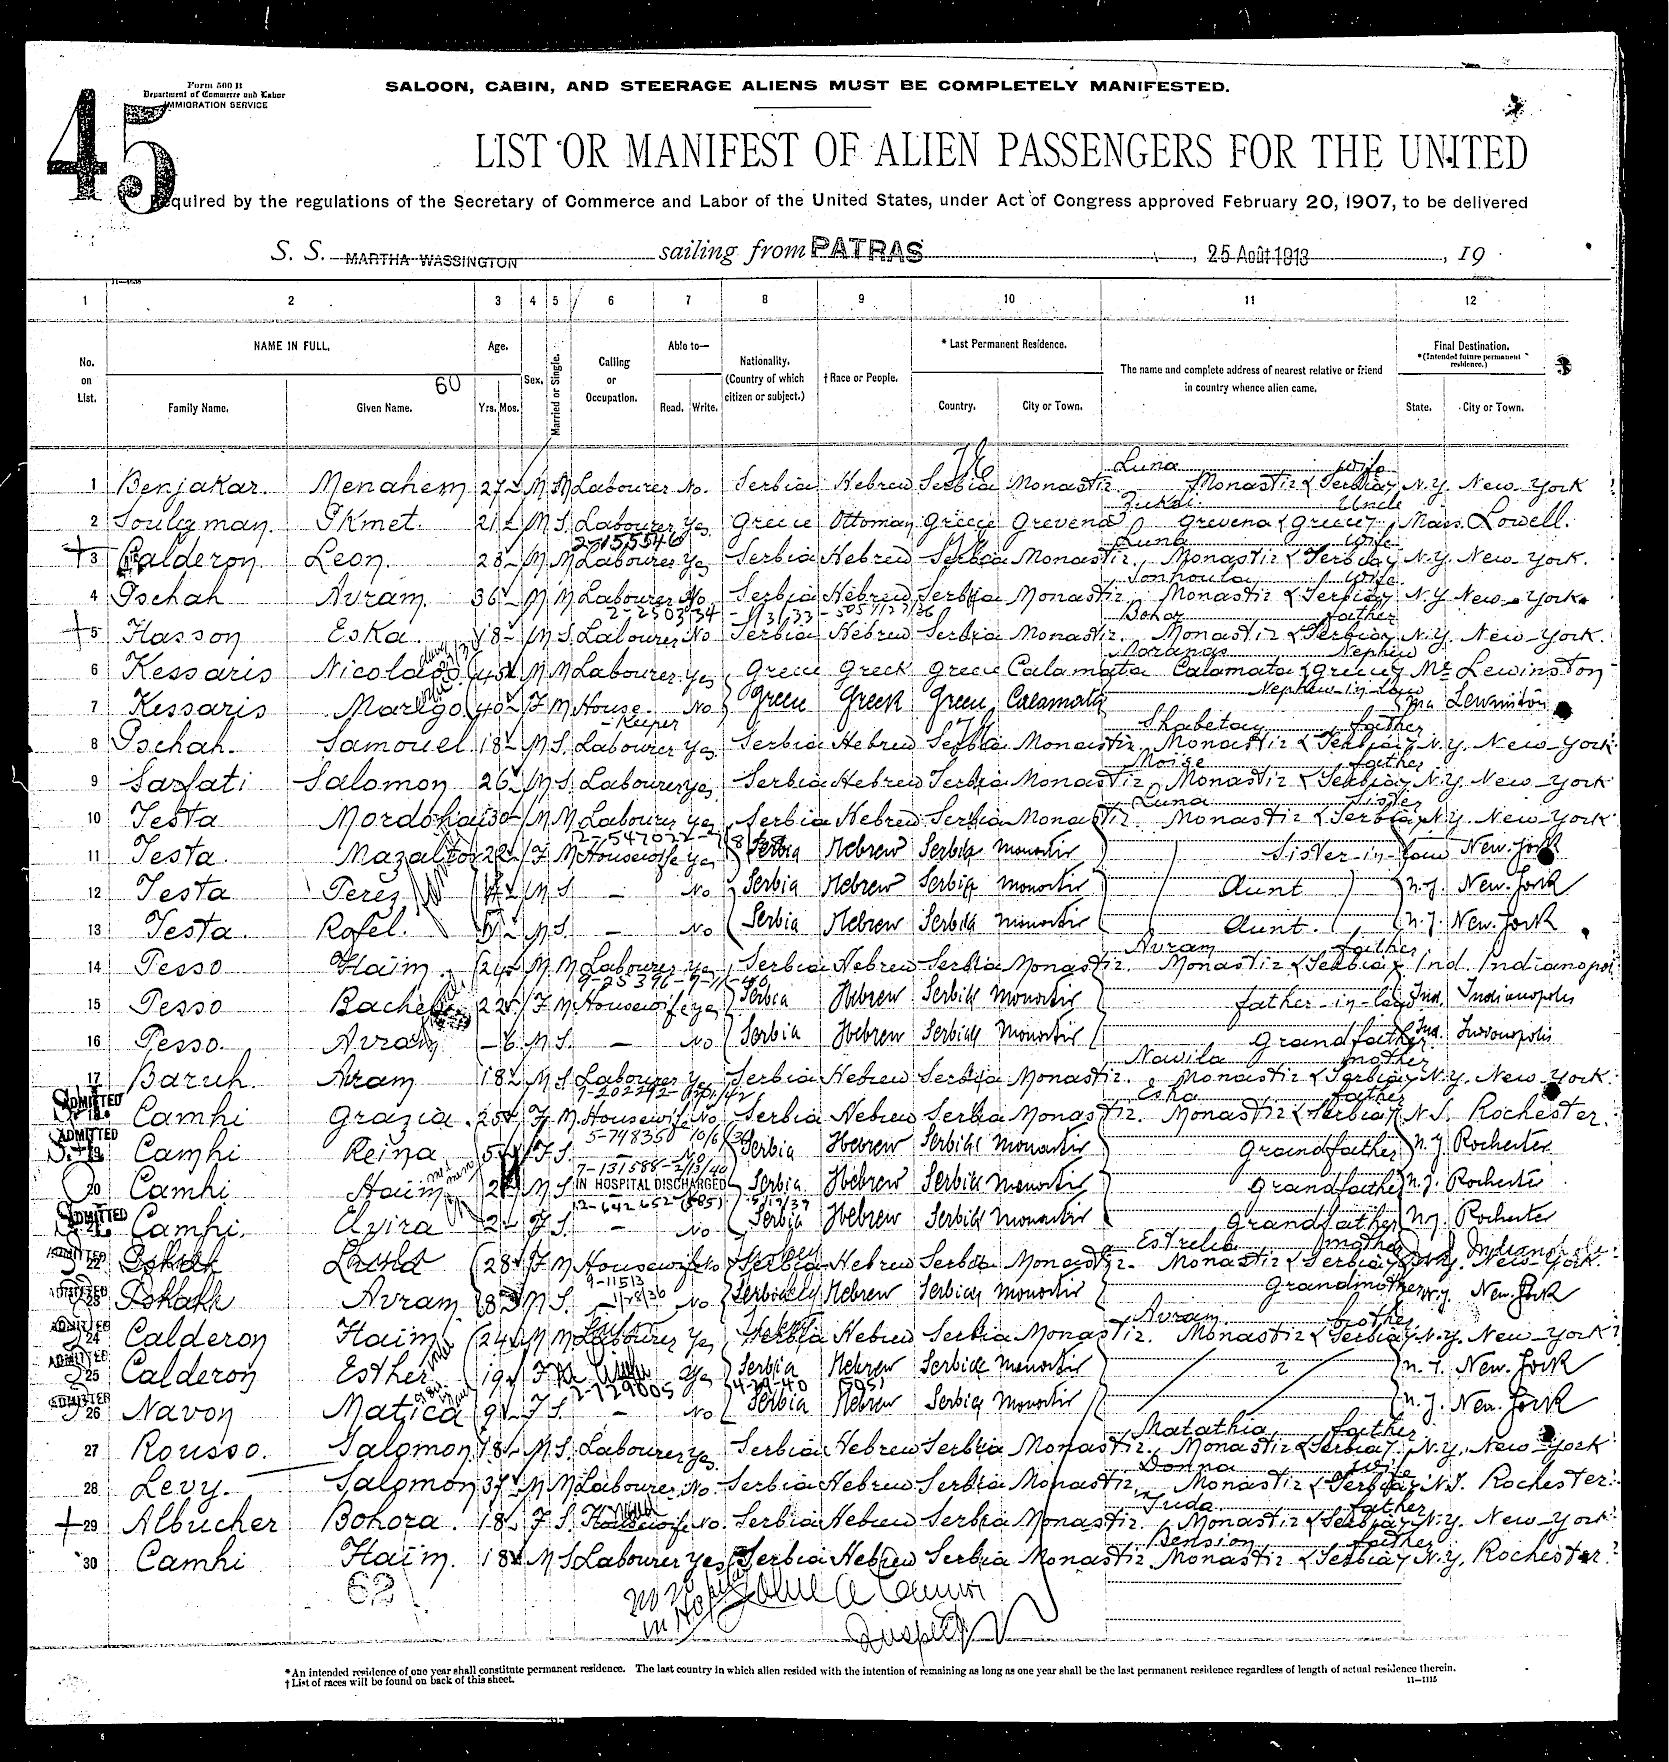 45
Form 500 B
Department of Commerce and Labor
IMMIGRATION SERVICE
SALOON, CABIN, AND STEERAGE ALIENS MUST BE COMPLETELY MANIFESTED.
LIST OR MANIFEST OF ALIEN PASSENGERS FOR THE UNITED
Required by the regulations of the Secretary of Commerce and Labor of the United States, under Act of Congress approved February 20, 1907, to be delivered
S. S. MARTHA WASSINGTON sailing from PATRAS, 25 Août 1913, 19
1 2 3 4 5 6 7 8 9 10 11 12
No. on List.
NAME IN FULL.
Family Name. Given Name.
60
Age.
Yrs. Mos.
Sex.
Married or Single.
Calling or Occupation.
Able to—
Read. Write.
Nationality. (Country of which citizen or subject.)
† Race or People.
* Last Permanent Residence.
Country. City or Town.
The name and complete address of nearest relative or friend in country whence alien came.
Final Destination.
*(Intended future permanent residence.)
State. City or Town.
Luna wife
1 Benjakar. Menahem 27 M M Labourer No. Serbia Hebrew Serbia Monastir Monastir Serbia N.Y. New-York
Uncle
2 Souleyman. Ikmet. 21 M S. Labourer Yes Greece Ottoman Greece Grevena Grevena Greece Mass. Lowell.
2-155546 Luna wife
3 Calderon Leon. 28 M M Labourer Yes Serbia Hebrew Serbia Monastir. Monastir Serbia N.Y. New-York.
wife
4 Ischah Avram. 36 M M Labourer No Serbia Hebrew Serbia Monastir Monastir Serbia N.Y New-York.
Bohor father
5 Hasson Eska. 18 M S. Labourer No Serbia Hebrew Serbia Monastir. Monastir Serbia N.Y. New-York.
Nephew
6 Kessaris Nicolaos 45 M M Labourer Yes Greece Greek Greece Calamata Calamata Greece Me Lewinston
Nephew-in-law
7 Kessaris Marigo 40 F M House-Keeper No Greece Greek Greece Calamata Lewinston
Shabetay father
8 Ischah. Samouel 18 M S. Labourer Yes Serbia Hebrew Serbia Monastir. Monastir Serbia N.Y. New-York
Moise father
9 Sarfati Salomon 26 M S. Labourer Yes Serbia Hebrew Serbia Monastir. Monastir Serbia N.Y. New-York
Luna sister
10 Testa Mordohai 30 M M Labourer Yes Serbia Hebrew Serbia Monastir. Monastir Serbia N.Y. New-York
11 Testa. Mazaltov 22 F M Housewife Yes Serbia Hebrew Serbia Monastir Sister-in-law New-York
12 Testa Perez 4 M S. — No Serbia Hebrew Serbia Monastir Aunt N.Y. New-York
13 Testa. Rafel. M S. — No Serbia Hebrew Serbia Monastir Aunt. N.Y. New-York
Avram father
14 Pesso Haim. 24 M M Labourer Yes Serbia Hebrew Serbia Monastir. Monastir Serbia Ind. Indianopol
15 Pesso Rachel 22 F M Housewife Yes Serbia Hebrew Serbia Monastir father-in-law Ind. Indianopolis
16 Pesso. Avram — 6 M S. — No Serbia Hebrew Serbia Monastir Grandfather Ind. Indianopolis
mother
17 Baruh. Avram 18 M S Labourer Yes Serbia Hebrew Serbia Monastir. Monastir Serbia N.Y. New-York.
father
ADMITTED
18 Camhi Grazia. 25 F M. Housewife No Serbia Hebrew Serbia Monastir. Monastir Serbia N.Y. Rochester.
5-798350 10/6/38
ADMITTED
19 Camhi Reina 5 F S. — No Serbia Hebrew Serbia Monastir Grandfather N.Y Rochester
7-131588-2/13/40
20 Camhi Haim 2 M S IN HOSPITAL DISCHARGED Serbia Hebrew Serbia Monastir Grandfather N.Y. Rochester
ADMITTED
21 Camhi. Elvira 2 F S. — No Serbia Hebrew Serbia Monastir Grandfather N.Y Rochester
Estrelia mother
ADMITTED
22 28 F M Housewife No Hebrew Serbia Monastir. Monastir Serbia New-York.
ADMITTED
23 Avram 8 M S. — No Hebrew Serbia Monastir Grandmother N.Y. New-York
Avram brother
ADMITTED
24 Calderon Haim 24 M M Labourer Yes Serbia Hebrew Serbia Monastir. Monastir Serbia N.Y. New-York
ADMITTED
25 Calderon Esther 19 F M Yes Serbia Hebrew Serbia Monastir N.Y. New-York
2-729005
ADMITTED
26 Navon Matica 9 F S. — No Serbia Hebrew Serbia Monastir N.Y. New-York
Matathia father
27 Rousso. Salomon 18 M S. Labourer Yes Serbia Hebrew Serbia Monastir. Monastir Serbia N.Y. New-York
Donna wife
28 Levy. Salomon 37 M M Labourer No. Serbia Hebrew Serbia Monastir. Monastir Serbia N.Y. Rochester
Juda father
29 Albucher Bohora. 18 F S. Housewife No. Serbia Hebrew Serbia Monastir. Monastir Serbia N.Y. New-York
Bension father
30 Camhi Haim. 18 M S Labourer Yes Serbia Hebrew Serbia Monastir Monastir Serbia N.Y. Rochester
62
*An intended residence of one year shall constitute permanent residence. The last country in which alien resided with the intention of remaining as long as one year shall be the last permanent residence regardless of length of actual residence therein.
† List of races will be found on back of this sheet.
11—1115